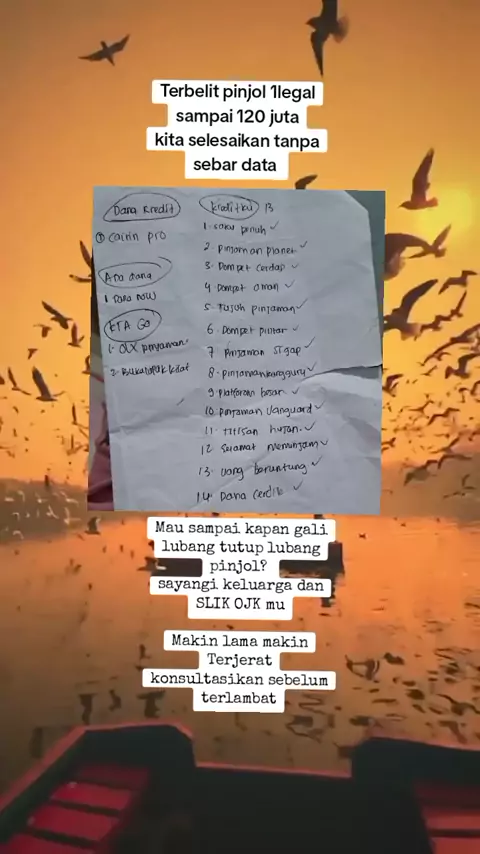 Terbelit pinjol 1legal
sampai 120 juta
kita selesaikan tanpa
sebar data
Dana Kredit
① Cairin pro
Ada dana
1. Sana now
KTA GO
1. OLX pinjaman
2. Bukalapak kilat
Kreditku 13
1. Saku penuh ✓
2. Pinjaman planet ✓
3. Dompet cerdap ✓
4. Dompet aman ✓
5. Tujuh pinjaman ✓
6. Dompet pintar ✓
7. Pinjaman sigap ✓
8. Pinjaman kangguru ✓
9. Platform besar ✓
10. Pinjaman Vanguard ✓
11. Titisan hujan ✓
12. Selamat meminjam ✓
13. Uang beruntung ✓
14. Dana cerdik ✓
Mau sampai kapan gali
lubang tutup lubang
pinjol?
sayangi keluarga dan
SLIK OJK mu
Makin lama makin
Terjerat
konsultasikan sebelum
terlambat